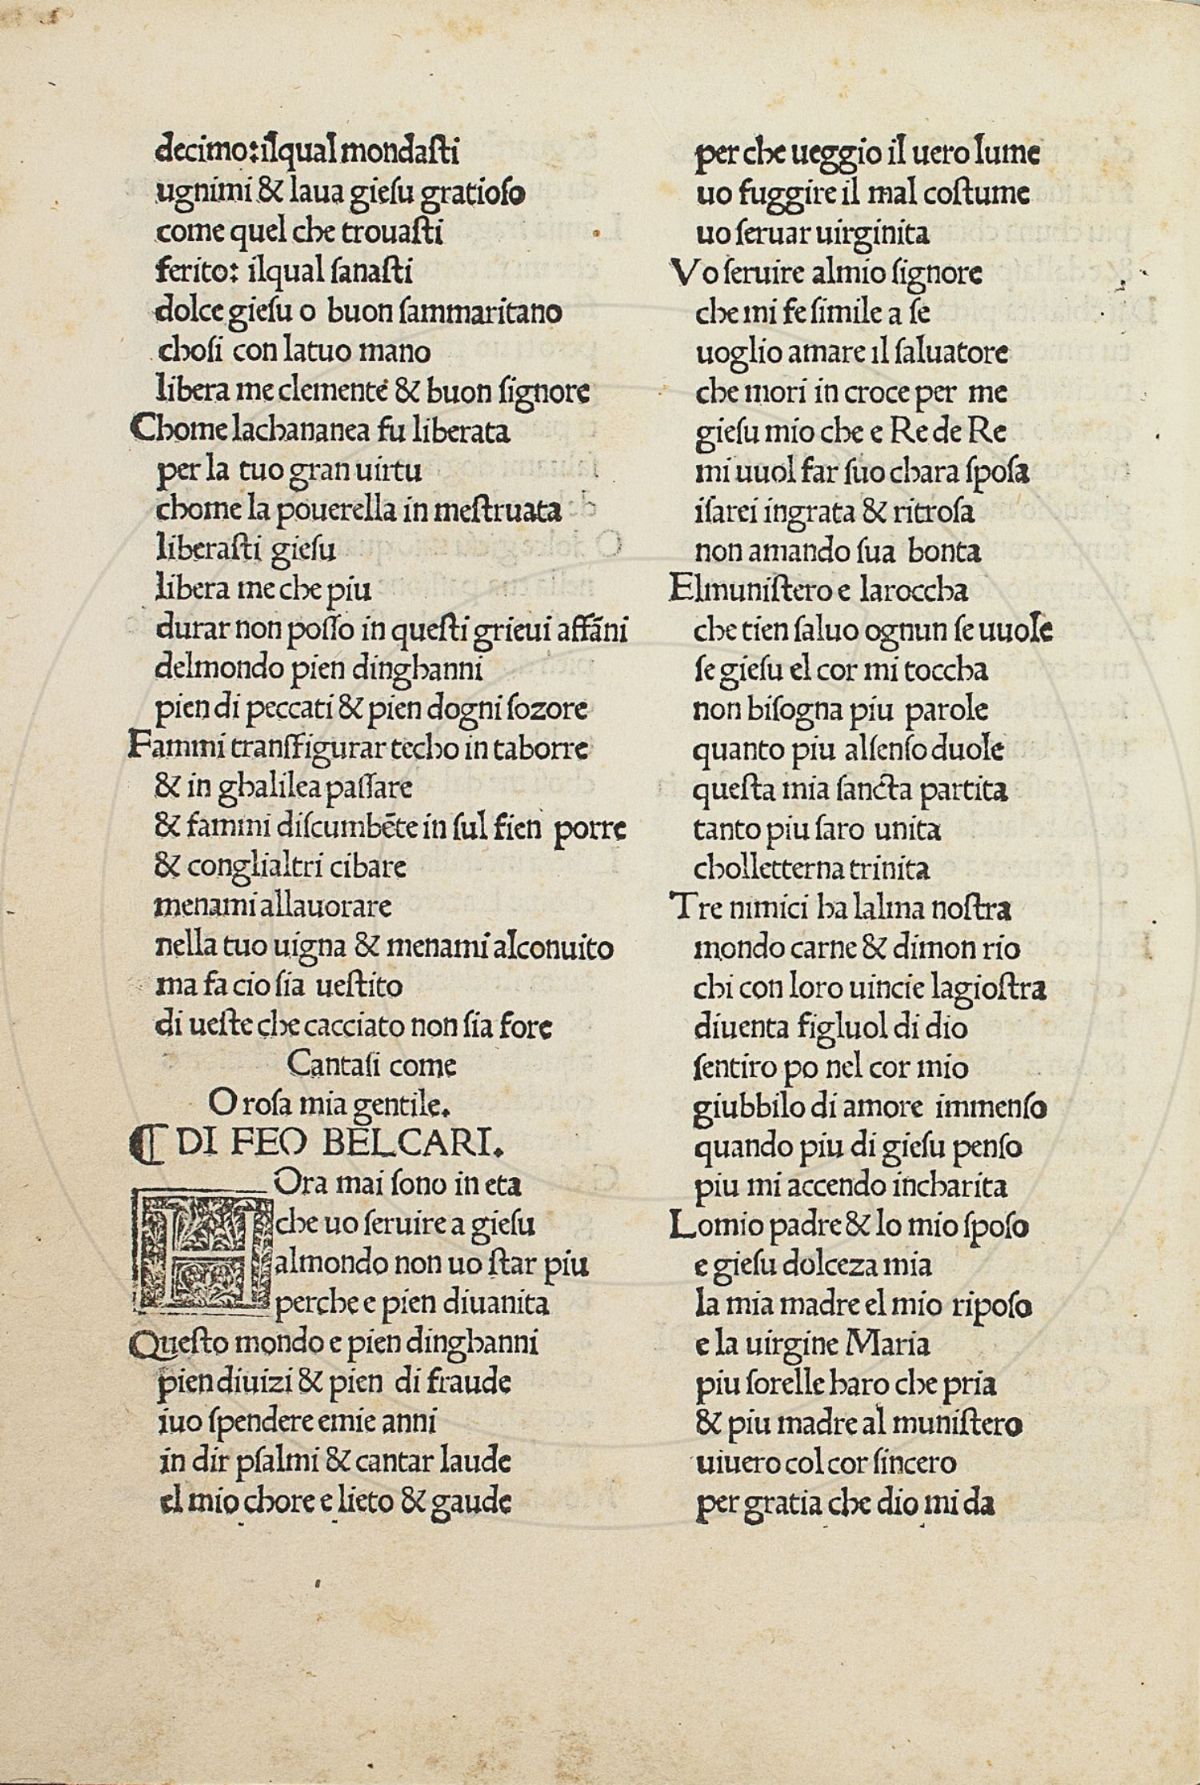 decimo: ilqual mondasti
ugnimi & laua giesu gratioso
come quel che trouasti
ferito: ilqual sanasti
dolce giesu o buon sammaritano
chosi con latuo mano
libera me clemente & buon signore
Chome lachananea fu liberata
per la tuo gran uirtu
chome la pouerella in mestruata
liberasti giesu
libera me che piu
durar non posso in questi grieui affãni
delmondo pien dinghanni
pien di peccati & pien dogni sozore
Fammi transfigurar techo in taborre
& in ghalilea passare
& fammi discumbẽte in sul fien porre
& conglialtri cibare
menami allauorare
nella tuo uigna & menami alconuito
ma fa cio sia uestito
di ueste che cacciato non sia fore
Cantasi come
O rosa mia gentile.
¶ DI FEO BELCARI.
HOra mai sono in eta
che uo seruire a giesu
almondo non uo star piu
perche e pien diuanita
Questo mondo e pien dinghanni
pien diuizi & pien di fraude
iuo spendere emie anni
in dir psalmi & cantar laude
el mio chore e lieto & gaude
per che ueggio il uero lume
uo fuggire il mal costume
uo seruar uirginita
Vo seruire almio signore
che mi fe simile a se
uoglio amare il saluatore
che mori in croce per me
giesu mio che e Re de Re
mi uuol far suo chara sposa
isarei ingrata & ritrosa
non amando sua bonta
Elmunistero e laroccha
che tien saluo ognun se uuole
se giesu el cor mi toccha
non bisogna piu parole
quanto piu alsenso duole
questa mia sancta partita
tanto piu saro unita
cholletterna trinita
Tre nimici ha lalma nostra
mondo carne & dimon rio
chi con loro uincie lagiostra
diuenta figluol di dio
sentiro po nel cor mio
giubbilo di amore immenso
quando piu di giesu penso
piu mi accendo incharita
Lomio padre & lo mio sposo
e giesu dolceza mia
la mia madre el mio riposo
e la uirgine Maria
piu sorelle haro che pria
& piu madre al munistero
uiuero col cor sincero
per gratia che dio mi da